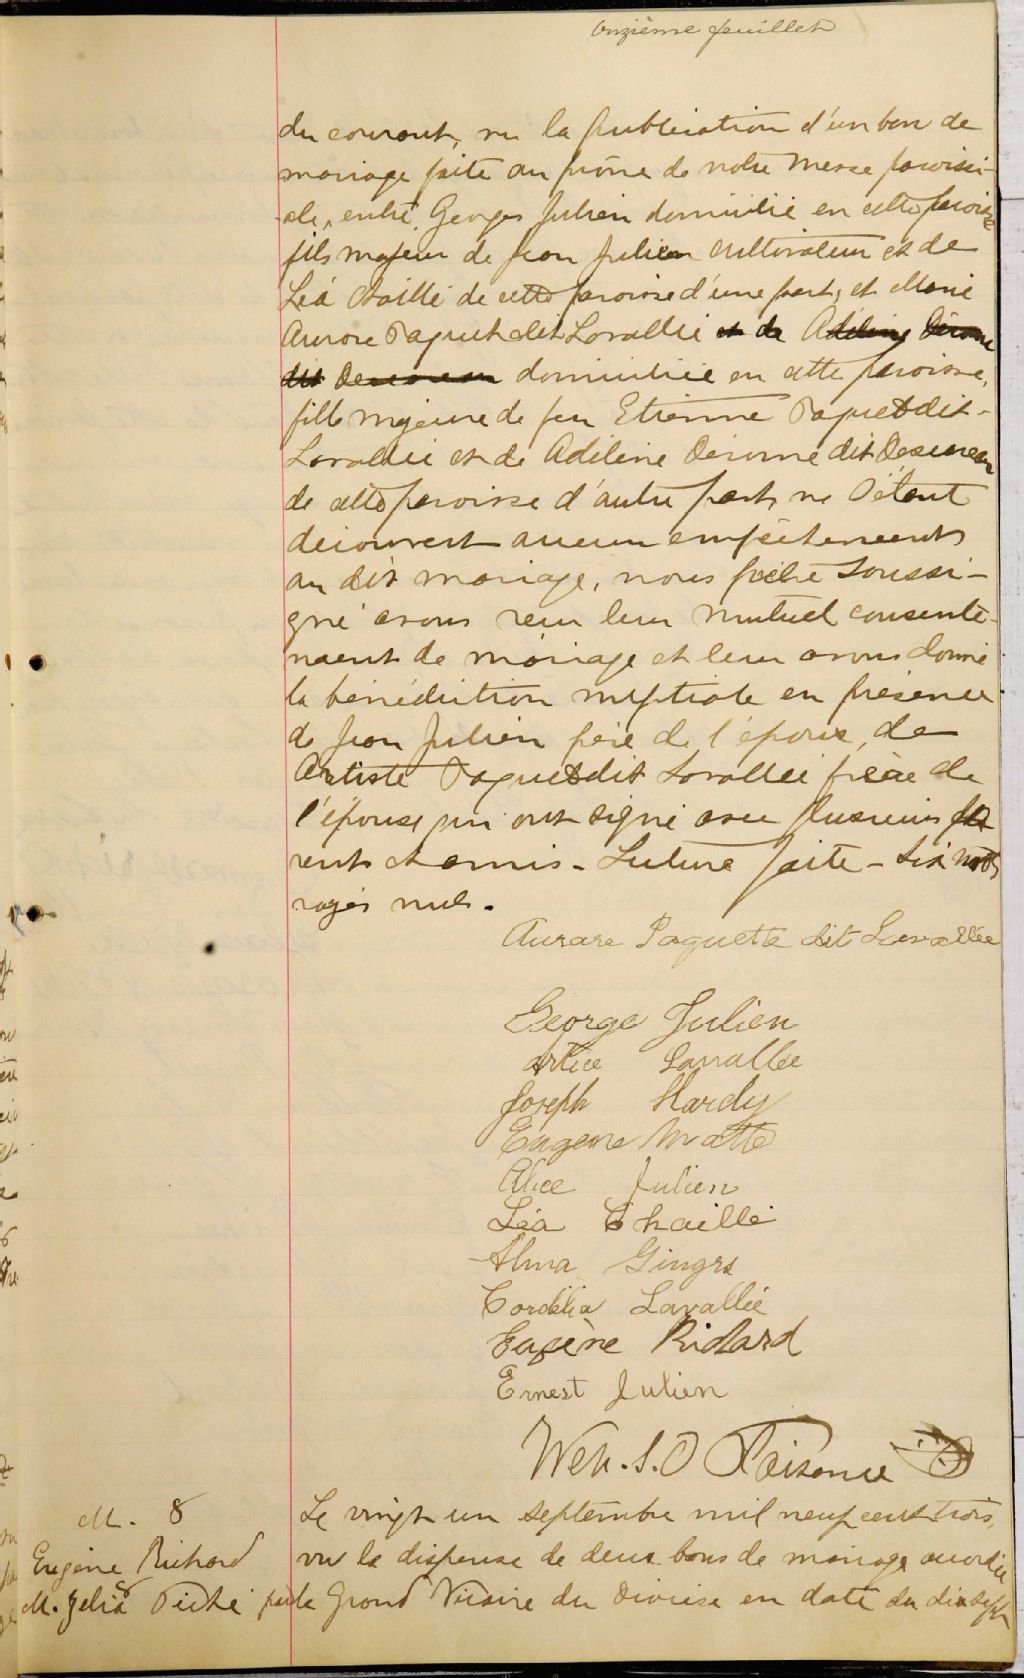 onzième feuillet
du courant, vu la publication d'un ban de
mariage faite au prône de notre Messe paroissi-
ale, entre Georges Julien domicilié en cette paroisse
fils majeur de Jean Julien cultivateur et de
Léa Chaillé de cette paroisse d'une part, et Marie
Aurore Paquet dit Lavallée et de Adéline Dérome
dit domiciliée en cette paroisse,
fille majeure de feu Etienne Paquet dit-
Lavallée et de Adéline Dérome dit
de cette paroisse d'autre part, ne s'étant
découvert aucun empêchements
au dit mariage, nous prêtre soussi-
gné avons reçu leur mutuel consente-
ment de mariage et leur avons donné
la bénédiction nuptiale en présence
de Jean Julien père de l'époux, de
Artiste Paquet dit Lavallée frère de
l'épouse qui ont signé avec plusieurs pa
rents et amis - Lecture faite - Six mots
rayés nuls.
Aurore Paquette dit Lavallée
George Julien
Lavallée
Joseph Hardy
Eugene Matte
Alice Julien
Léa Chaillé
Alma Gingrs
Cordélia Lavallée
Eugène Richard
Ernest Julien
M. 8
Eugène Richard
M. Zélia Piché
Le vingt un septembre mil neuf cent trois,
vu la dispense de deux bans de mariage accordée
par le Grand Vicaire du diocèse en date du dix Sept